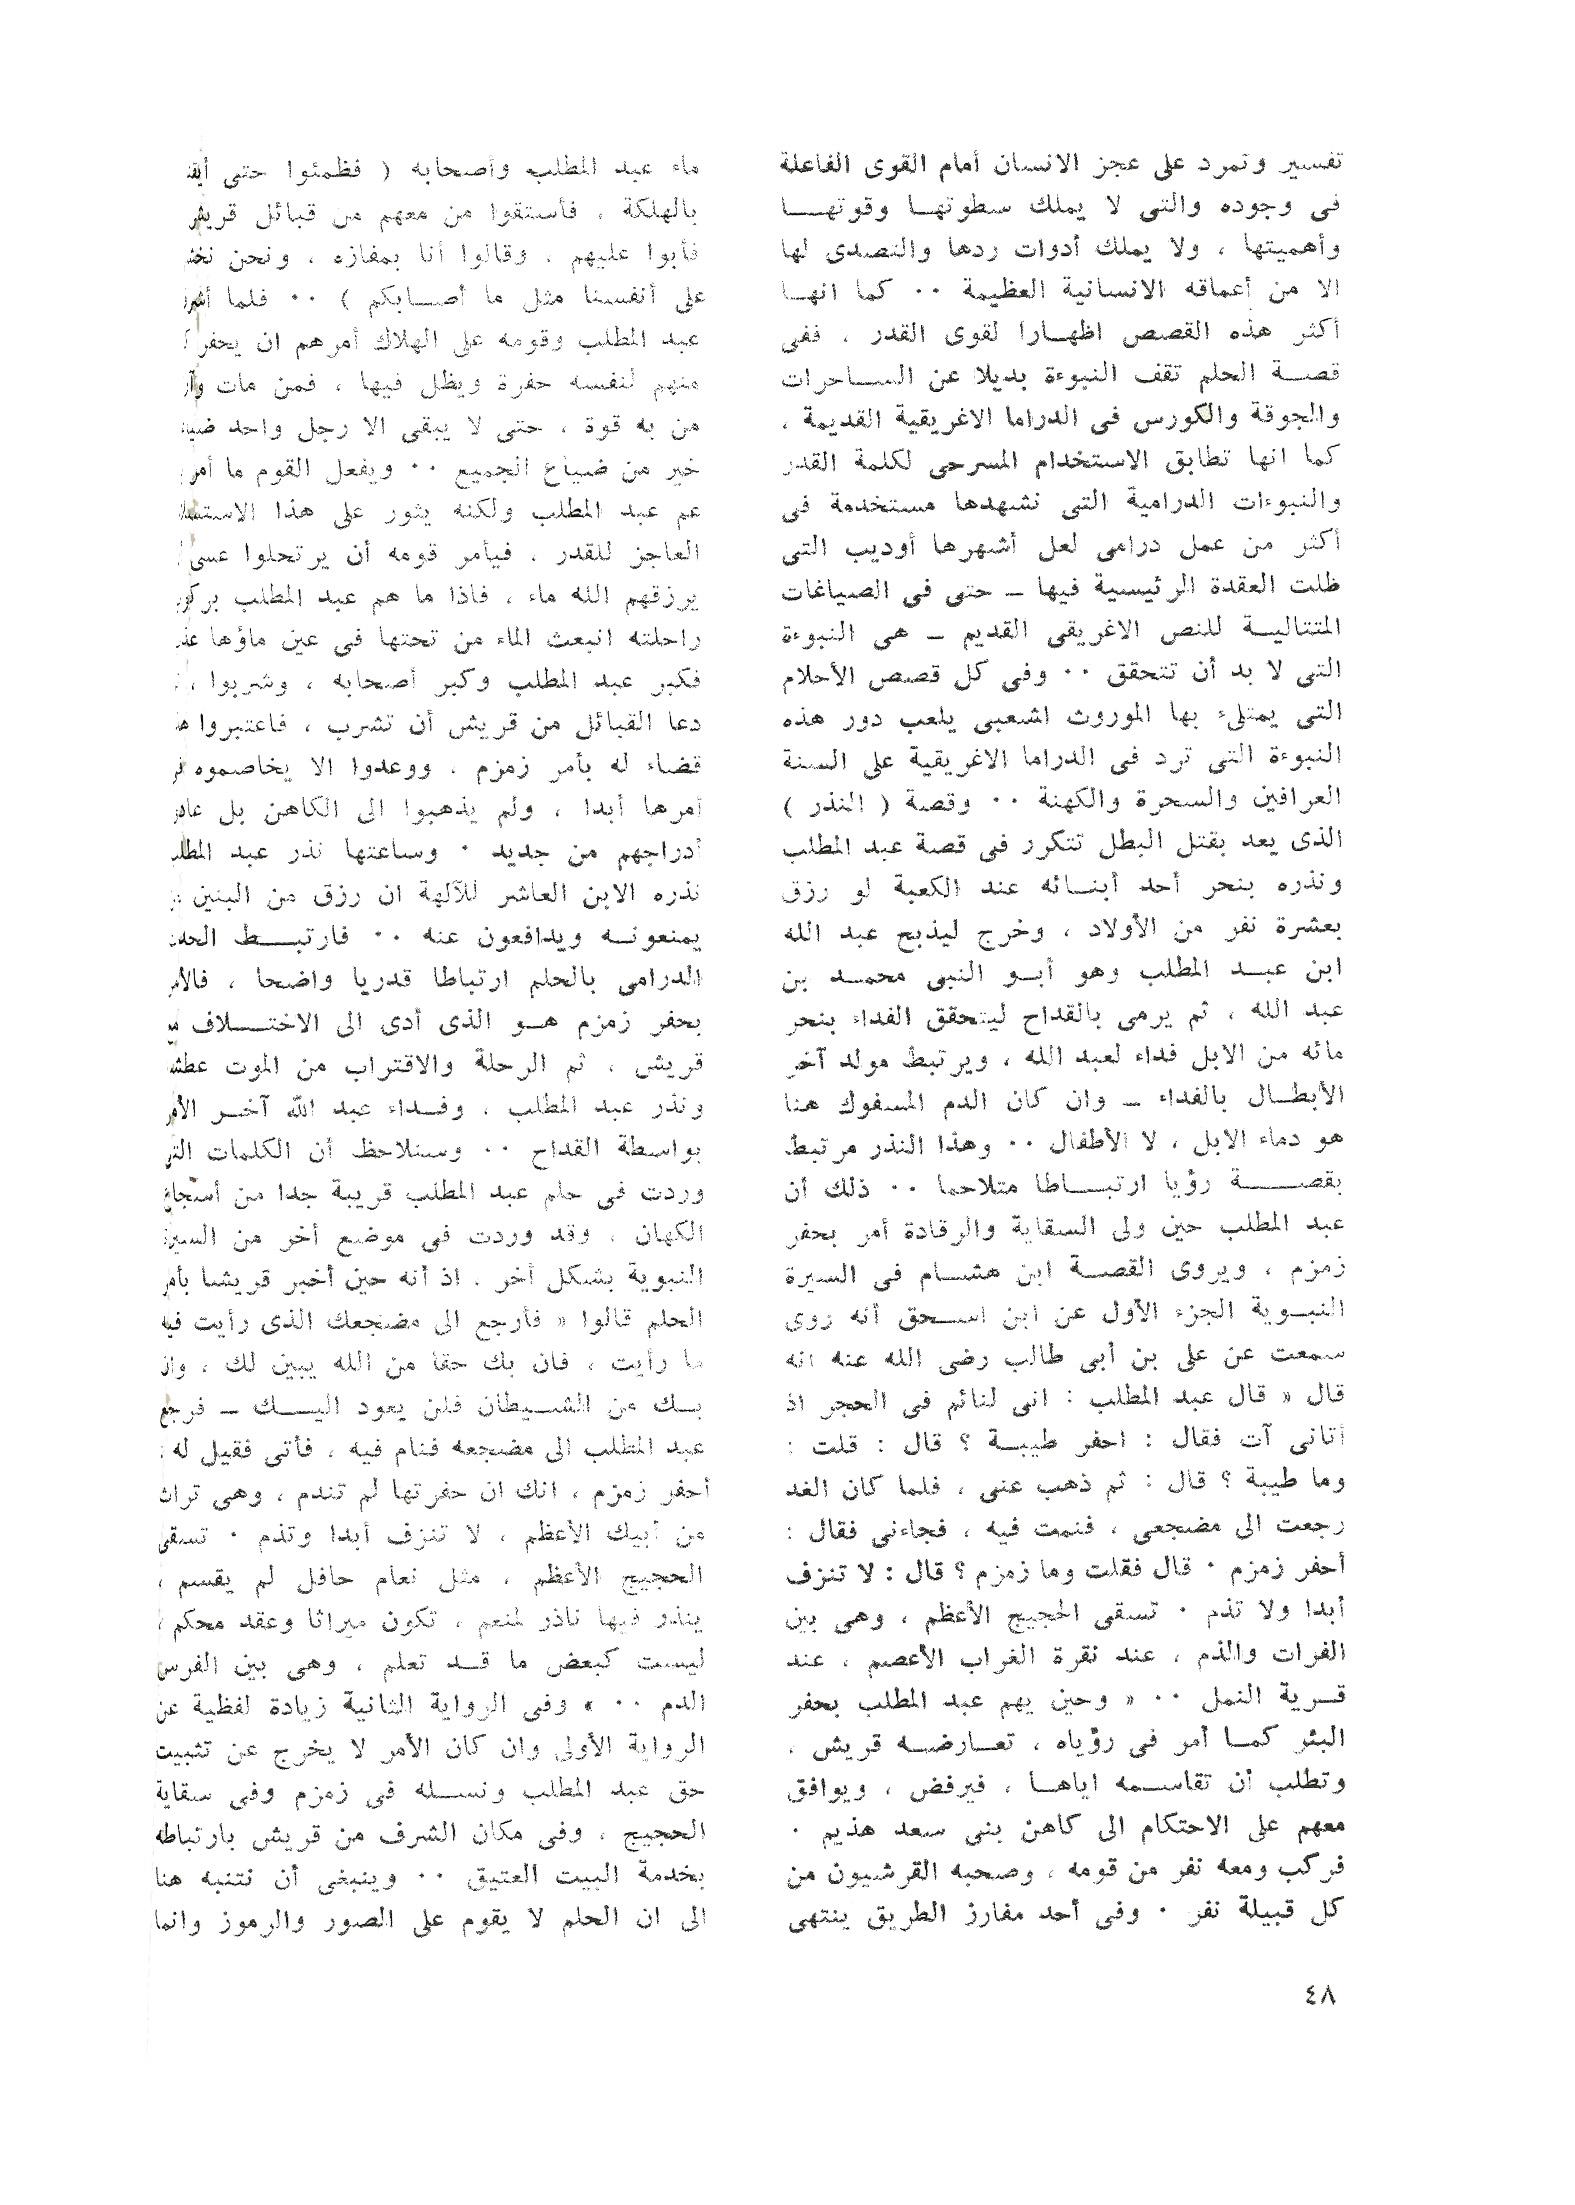 تفسير وتمرد على عجز الانسان أمام القوى الفاعلة
فى وجوده والتى لا يملك سطوتها وقوتها
وأهميتها ، ولا يملك أدوات ردها والتصدى لها
الا من أعماقه الانسانية العظيمة ٠٠ كما انها
أكثر هذه القصص اظهارا لقوى القدر ، ففى
قصة الحلم تقف النبوءة بديلا عن الساحرات
والجوقة والكورس فى الدراما الاغريقية القديمة ،
كما انها تطابق الاستخدام المسرحى لكلمة القدر
والنبوءات الدرامية التى نشهدها مستخدمة فى
أكثر من عمل درامى لعل أشهرها أوديب التى
ظلت العقدة الرئيسية فيها ـ حتى فى الصياغات
المتتالية للنص الاغريقى القديم ـ هى النبوءة
التى لا بد أن تتحقق ٠٠ وفى كل قصص الأحلام
التى يمتلىء بها الموروث اشعبى يلعب دور هذه
النبوءة التى ترد فى الدراما الاغريقية على السنة
العرافين والسحرة والكهنة ٠٠ وقصة ( النذر )
الذى يعد بقتل البطل تتكرر فى قصة عبد المطلب
ونذره بنحر أحد أبنائه عند الكعبة لو رزق
بعشرة نفر من الأولاد ، وخرج ليذبح عبد الله
ابن عبد المطلب وهو أبو النبى محمد بن
عبد الله ، ثم يرمى بالقداح ليتحقق الفداء بنحر
مائه من الابل فداء لعبد الله ، ويرتبط مولد آخر
الأبطال بالفداء ـ وان كان الدم المسفوك هنا
هو دماء الابل ، لا الأطفال ٠٠ وهذا النذر مرتبط
بقصة رؤيا ارتباطا متلاحما ٠٠ ذلك أن
عبد المطلب حين ولى السقاية والرقادة أمر بحفر
زمزم ، ويروى القصة ابن هشام فى السيرة
النبوية الجزء الأول عن ابن اسحق أنه روى
سمعت عن على بن أبى طالب رضى الله عنه انه
قال « قال عبد المطلب : انى لنائم فى الحجر اذ
أتانى آت فقال : احفر طيبة ؟ قال : قلت :
وما طيبة ؟ قال : ثم ذهب عنى ، فلما كان الغد
رجعت الى مضجعى ، فنمت فيه ، فجاءنى فقال :
أحفر زمزم ٠ قال فقلت وما زمزم ؟ قال : لا تنزف
أبدا ولا تذم ٠ تسقى الحجيج الأعظم ، وهى بين
الفرات والدم ، عند نقرة الغراب الأعصم ، عند
قرية النمل ٠٠ « وحين يهم عبد المطلب بحفر
البئر كما أمر فى رؤياه ، تعارضه قريش ،
وتطلب أن تقاسمه اياها ، فيرفض ، ويوافق
معهم على الاحتكام الى كاهن بنى سعد هذيم ٠
فركب ومعه نفر من قومه ، وصحبه القرشيون من
كل قبيلة نفر ٠ وفى أحد مفارز الطريق ينتهى
ماء عبد المطلب وأصحابه ( فظمئوا حتى
بالهلكة ، فأستقوا من معهم من قبائل قريش
فأبوا عليهم ، وقالوا أنا بمفازه ، ونحن
على أنفسنا مثل ما أصابكم ) ٠٠ فلما
عبد المطلب وقومه على الهلاك أمرهم ان يحفر
منهم لنفسه حفرة ويظل فيها ، فمن مات
من به قوة ، حتى لا يبقى الا رجل واحد
خير من ضياع الجميع ٠٠ ويفعل القوم ما
عم عبد المطلب ولكنه يثور على هذا
العاجز للقدر ، فيأمر قومه أن يرتحلوا عسى
يرزقهم الله ماء ، فاذا ما هم عبد المطلب
راحلته انبعث الماء من تحتها فى عين ماؤها
فكبر عبد المطلب وكبر أصحابه ، وشربوا ،
دعا القبائل من قريش أن تشرب ، فاعتبروا
قضاء له بأمر زمزم ، ووعدوا الا يخاصموه
أمرها أبدا ، ولم يذهبوا الى الكاهن بل
أدراجهم من جديد ٠ وساعتها نذر عبد المطلب
نذره الابن العاشر للآلهة ان رزق من البنين
يمنعونه ويدافعون عنه ٠٠ فارتبط
الدرامى بالحلم ارتباطا قدريا واضحا ،
بحفر زمزم هو الذى أدى الى الاختلاف
قريش ، ثم الرحلة والاقتراب من الموت
ونذر عبد المطلب ، وفداء عبد الله آخر الأمر
بواسطة القداح ٠٠ وسنلاحظ أن الكلمات التى
وردت فى حلم عبد المطلب قريبة جدا من أسجاع
الكهان ، وقد وردت فى موضع أخر من السيرة
النبوية بشكل أخر . اذ أنه حين أخبر قريشا بأمر
الحلم قالوا « فأرجع الى مضجعك الذى رأيت فيه
ما رأيت ، فان يك حقا من الله يبين لك ، وان
يك من الشيطان فلن يعود اليك ـ فرجع
عبد المطلب الى مضجعه فنام فيه ، فأتى فقيل له :
أحفر زمزم ، انك ان حفرتها لم تندم ، وهى تراث
من أبيك الأعظم ، لا تنزف أبدا وتذم ٠ تسقى
الحجيج الأعظم ، مثل نعام حافل لم يقسم ،
ينذر فيها ناذر لمنعم ، تكون ميراثا وعقد محكم ،
ليست كبعض ما قد تعلم ، وهى بين الفرس
الدم ٠٠ » وفى الرواية الثانية زيادة لفظية عن
الرواية الأولى وان كان الأمر لا يخرج عن تثبيت
حق عبد المطلب ونسله فى زمزم وفى سقاية
الحجيج ، وفى مكان الشرف من قريش بارتباطه
بخدمة البيت العتيق ٠٠ وينبغى أن نتنبه هنا
الى ان الحلم لا يقوم على الصور والرموز وانما
٤٨